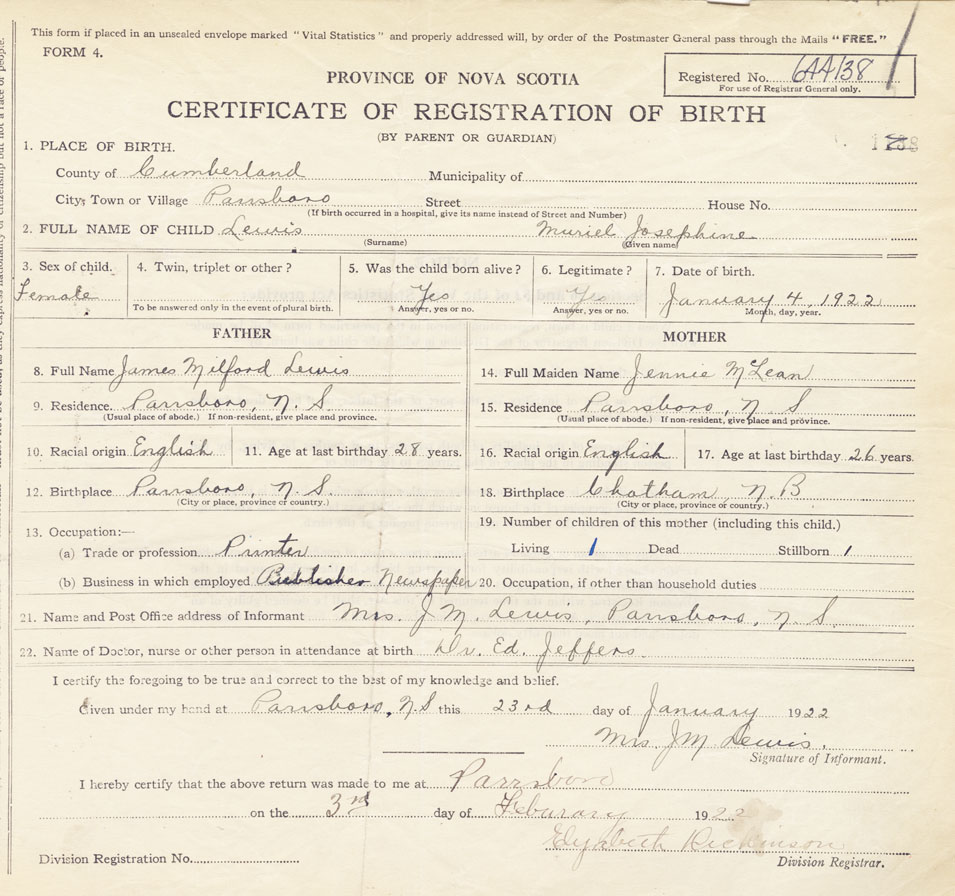 This form if placed in an unsealed envelope marked "Vital Statistics" and properly addressed will, by order of the Postmaster General pass through the Mails "FREE."
FORM 4.
PROVINCE OF NOVA SCOTIA
Registered No. 644138
For use of Registrar General only.
CERTIFICATE OF REGISTRATION OF BIRTH
(BY PARENT OR GUARDIAN)
1. PLACE OF BIRTH.
County of Cumberland Municipality of
City, Town or Village Parrsboro Street House No.
(If birth occurred in a hospital, give its name instead of Street and Number)
2. FULL NAME OF CHILD Lewis Muriel Josephine
(Surname) (Given name)
3. Sex of child. 4. Twin, triplet or other? 5. Was the child born alive? 6. Legitimate? 7. Date of birth.
Female Yes Yes January 4, 1922
To be answered only in the event of plural birth. Answer, yes or no. Answer, yes or no. Month, day, year.
FATHER MOTHER
8. Full Name James Milford Lewis
9. Residence. Parrsboro, N. S
(Usual place of abode.) If non-resident, give place and province.
10. Racial origin English 11. Age at last birthday 28 years.
12. Birthplace Parrsboro, N. S.
(City or place, province or country.)
13. Occupation:—
(a) Trade or profession Printer
(b) Business in which employed Publisher Newspaper
14. Full Maiden Name Jennie McLean
15. Residence Parrsboro, N. S
(Usual place of abode.) If non-resident, give place and province.
16. Racial origin English 17. Age at last birthday 26 years.
18. Birthplace Chatham, N. B
(City or place, province or country.)
19. Number of children of this mother (including this child.)
Living 1 Dead Stillborn 1
20. Occupation, if other than household duties
21. Name and Post Office address of Informant Mrs. J. M. Lewis, Parrsboro, N. S.
22. Name of Doctor, nurse or other person in attendance at birth Dr. Ed. Jeffers.
I certify the foregoing to be true and correct to the best of my knowledge and belief.
Given under my hand at Parrsboro, N.S this 23rd day of January 1922
Mrs. J M Lewis.
Signature of Informant.
I hereby certify that the above return was made to me at Parrsboro
on the 3rd day of Feburary 1922
Elizabeth Dickinson
Division Registration No. Division Registrar.